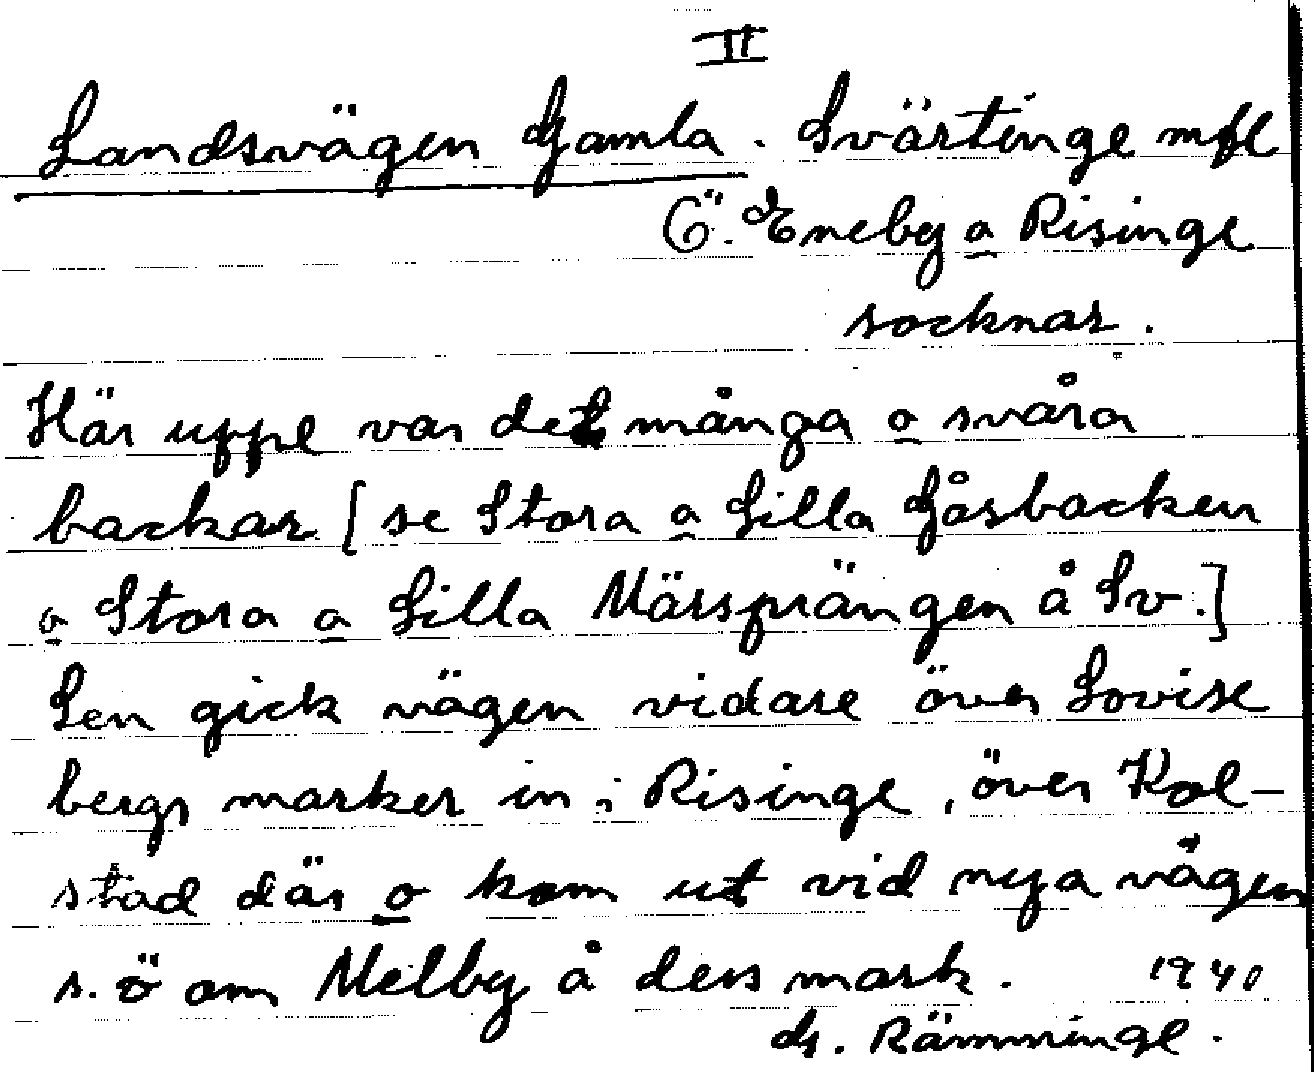 II
Landsvägen Gamla. Svärtinge mfl
Ö. Eneby o Risinge
socknar.
Här uppe var det många o svåra
backar [se Stora o Lilla Gåsbacken
o Stora o Lilla Märsprängen å Sv.]
Sen gick vägen vidare över Lovise
bergs marker in i Risinge, över Kol-
stad där o kom ut vid nya vägen
s. ö om Melby å dess mark. 1940
G. Rämminge.